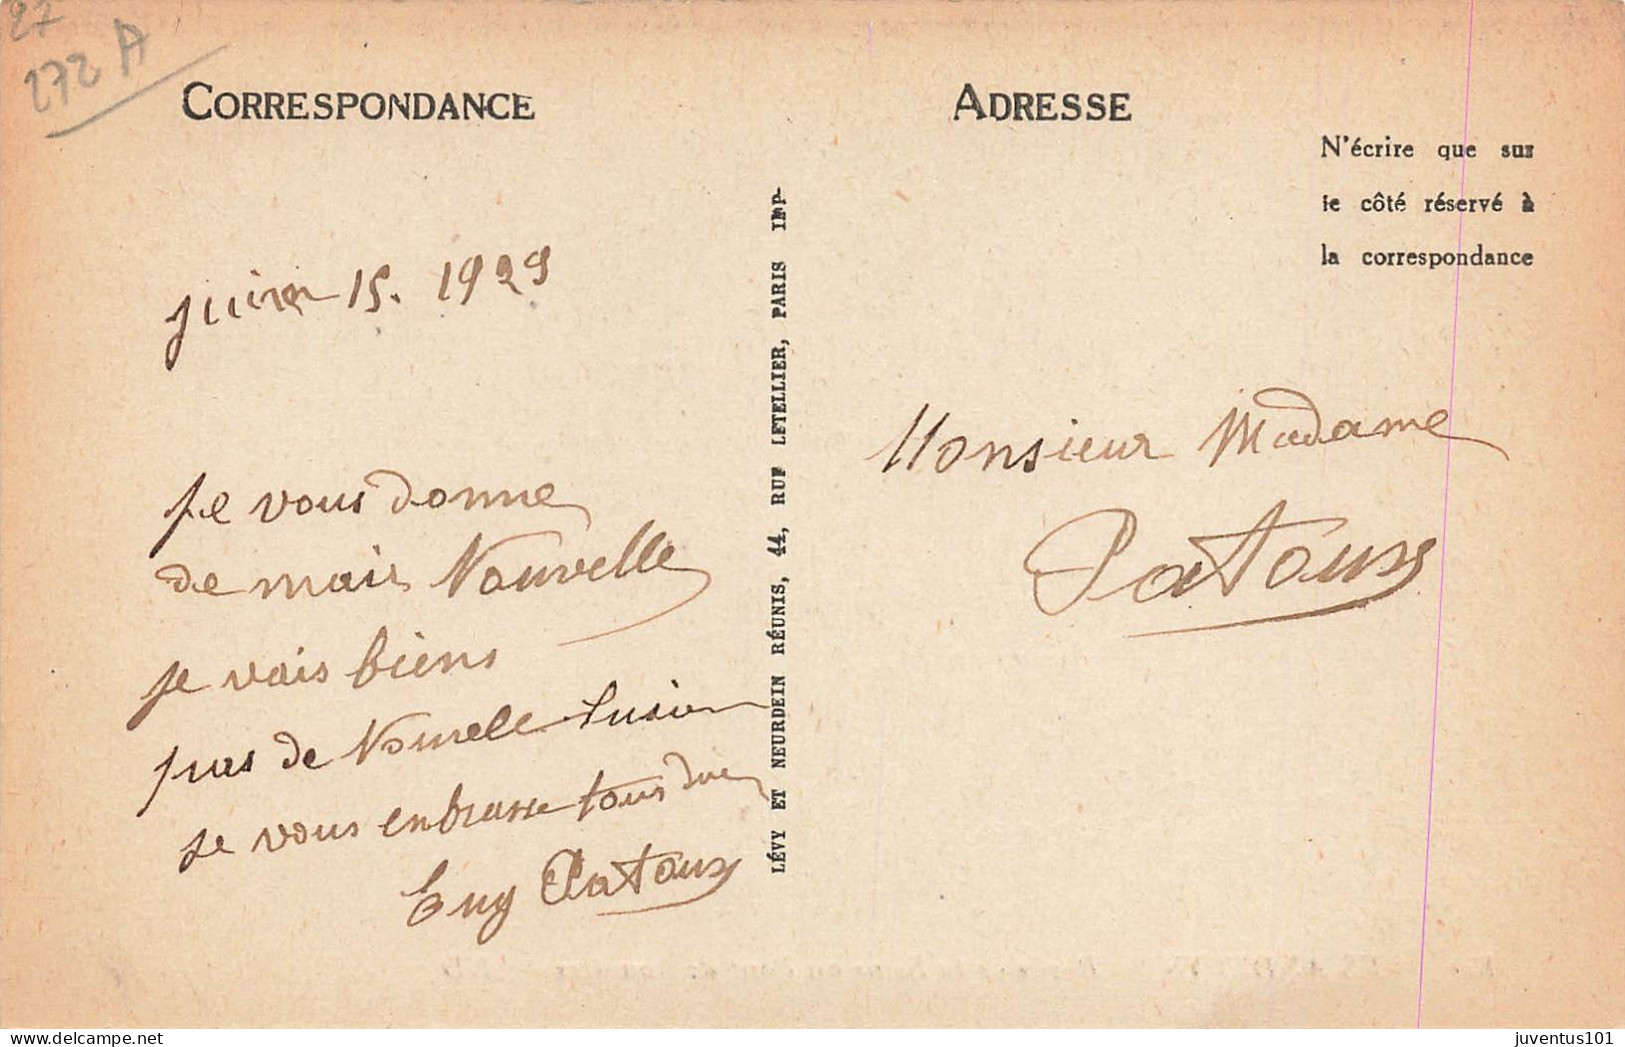 27
272 A
CORRESPONDANCE
juin 15. 1929
je vous donne
de mais Nouvelle
je vais biens
pas de Nouvelle
je vous enbrasse tous
Eug Patoux
LÉVY ET NEURDEIN RÉUNIS, 44, RUE LETELLIER, PARIS IMP-
ADRESSE
N'écrire que sur
le côté réservé à
la correspondance
Monsieur Madame
Patoux
juventus101